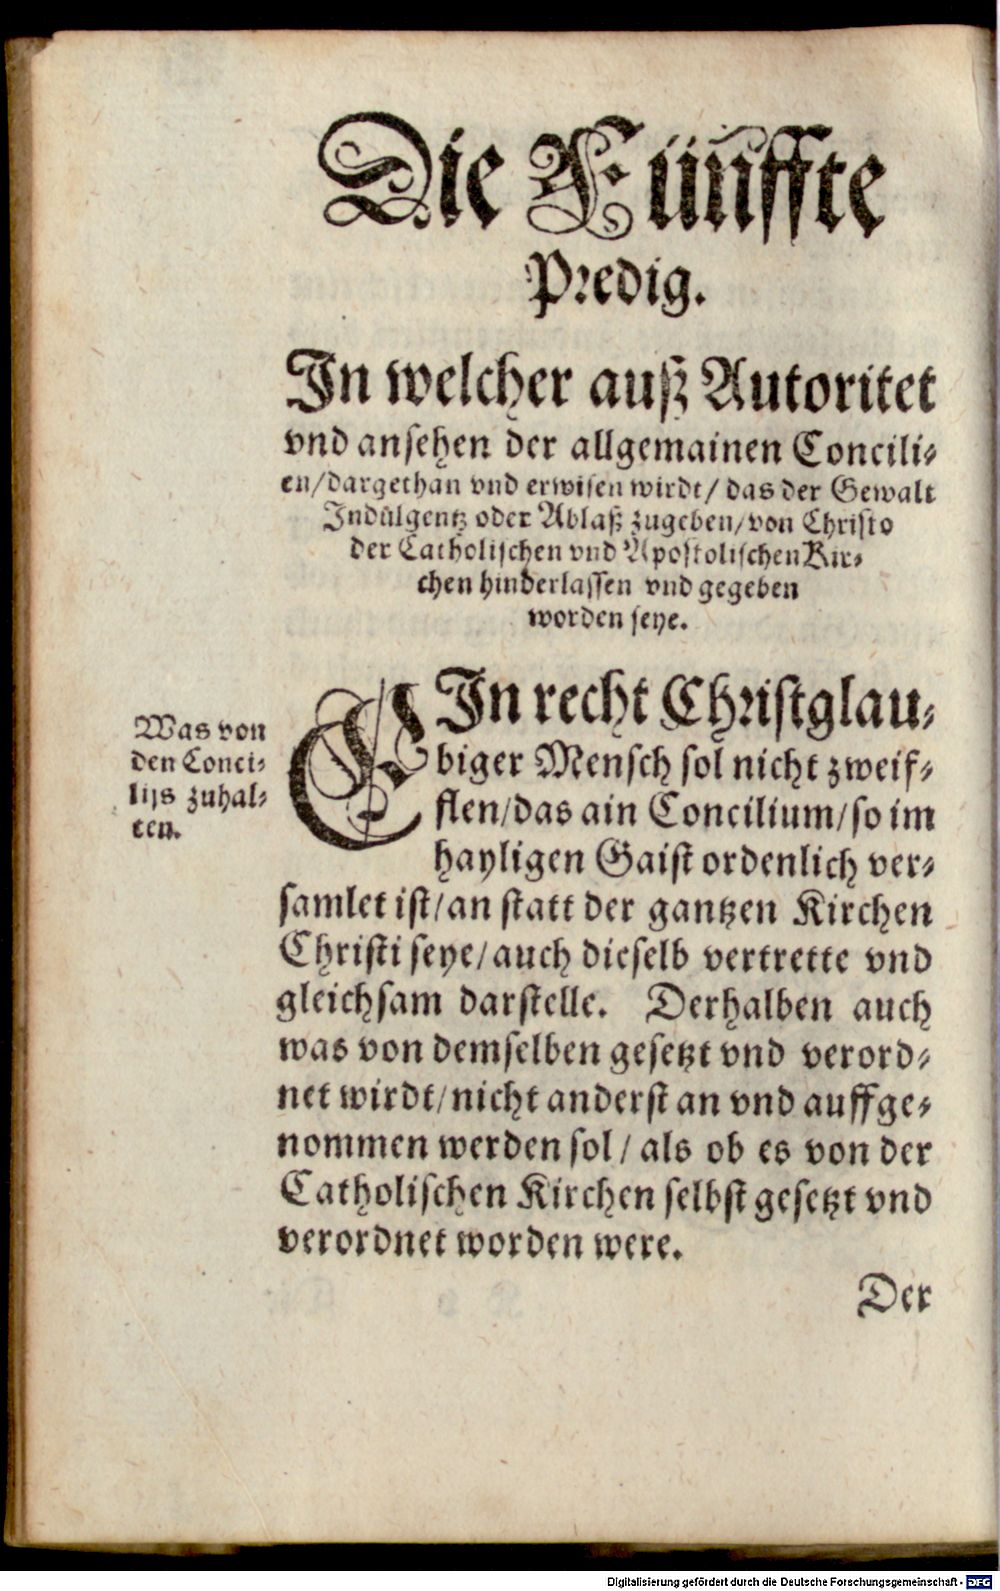 Die Fünffte
Predig.
In welcher auß Autoritet
vnd ansehen der allgemainen Concili⸗
en/dargethan vnd erwisen wirdt/ das der Gewalt
Indulgentz oder Ablaß zugeben/von Christo
der Catholischen vnd Apostolischen Kir⸗
chen hinderlassen vnd gegeben
worden seye.
Was von
den Conci⸗
lijs zuhal⸗
ten.
EIn recht Christglau⸗
biger Mensch sol nicht zweif⸗
flen/das ain Concilium/so im
hayligen Gaist ordenlich ver⸗
samlet ist/an statt der gantzen Kirchen
Christi seye/auch dieselb vertrette vnd
gleichsam darstelle. Derhalben auch
was von demselben gesetzt vnd verord⸗
net wirdt/nicht anderst an vnd auffge⸗
nommen werden sol/ als ob es von der
Catholischen Kirchen selbst gesetzt vnd
verordnet worden were.
Der
Digitalisierung gefördert durch die Deutsche Forschungsgemeinschaft - DFG